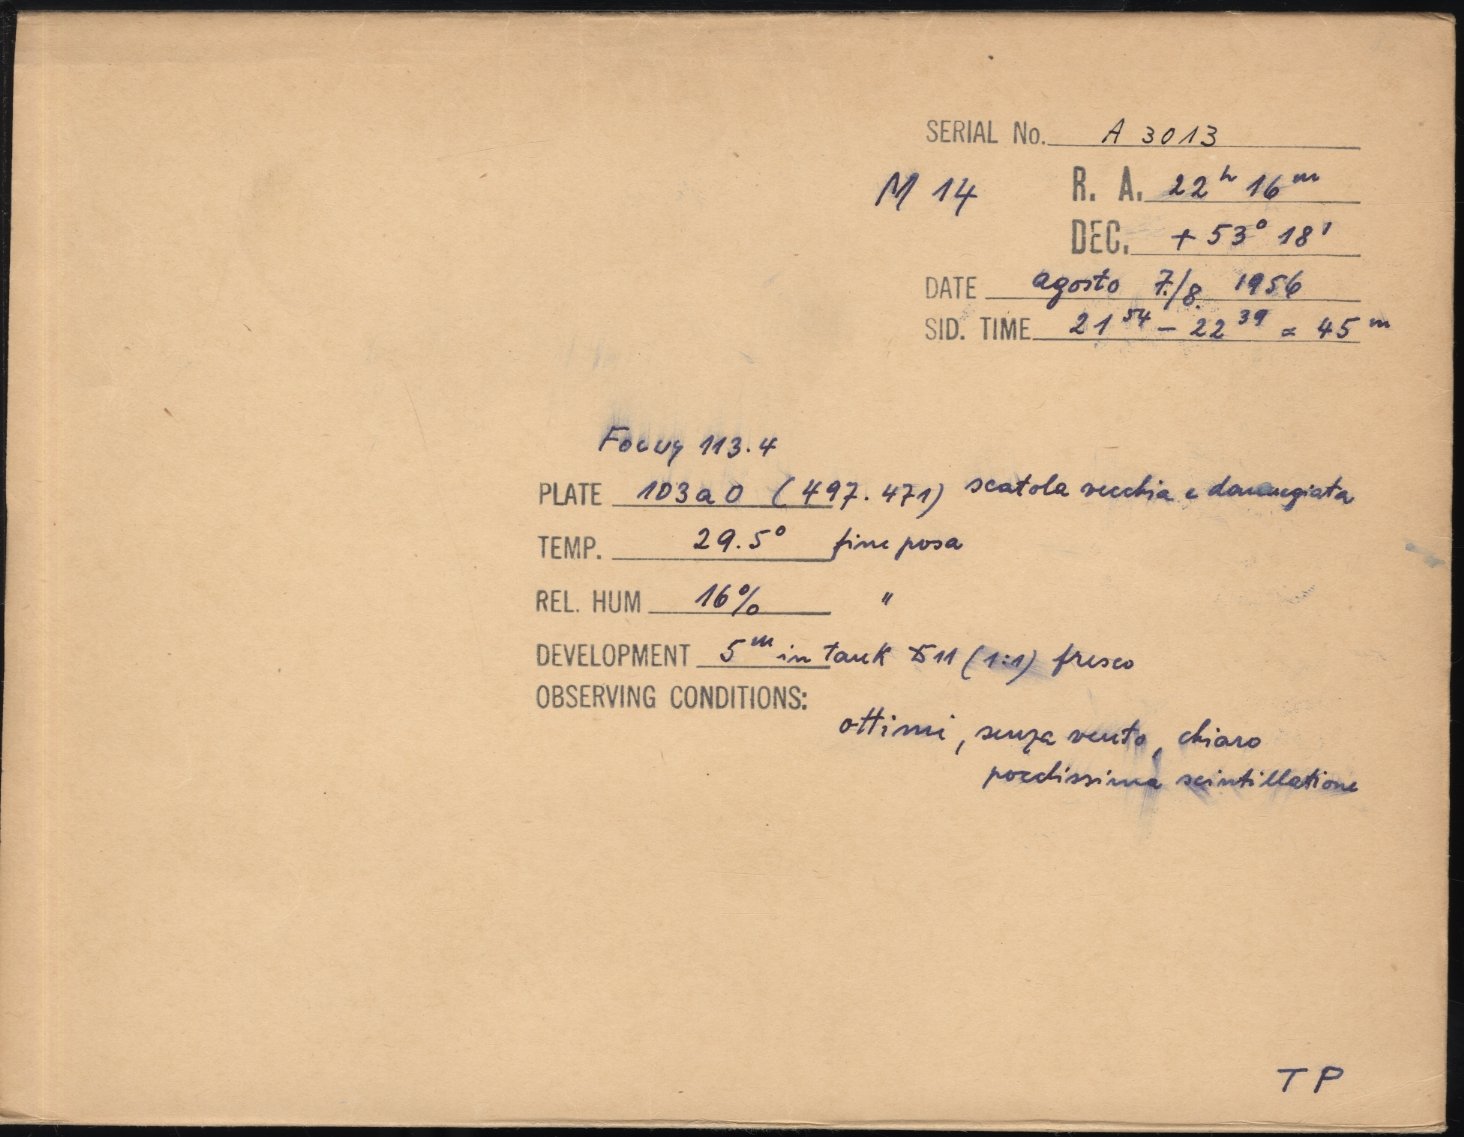 SERIAL No. A 3013
M 14 R. A. 22h 16m
DEC. + 53° 18'
DATE agosto 7./8. 1956
SID. TIME 21 54 – 22 39 = 45 m
Focus 113.4
PLATE 103a O (497.471) scatola vecchia e dannegiata
TEMP. 29.5° fine posa
REL. HUM 16% "
DEVELOPMENT 5m in tank D11 (1:1) fresco
OBSERVING CONDITIONS:
ottimi, senza vento, chiaro
pocchissima scintillatione
TP